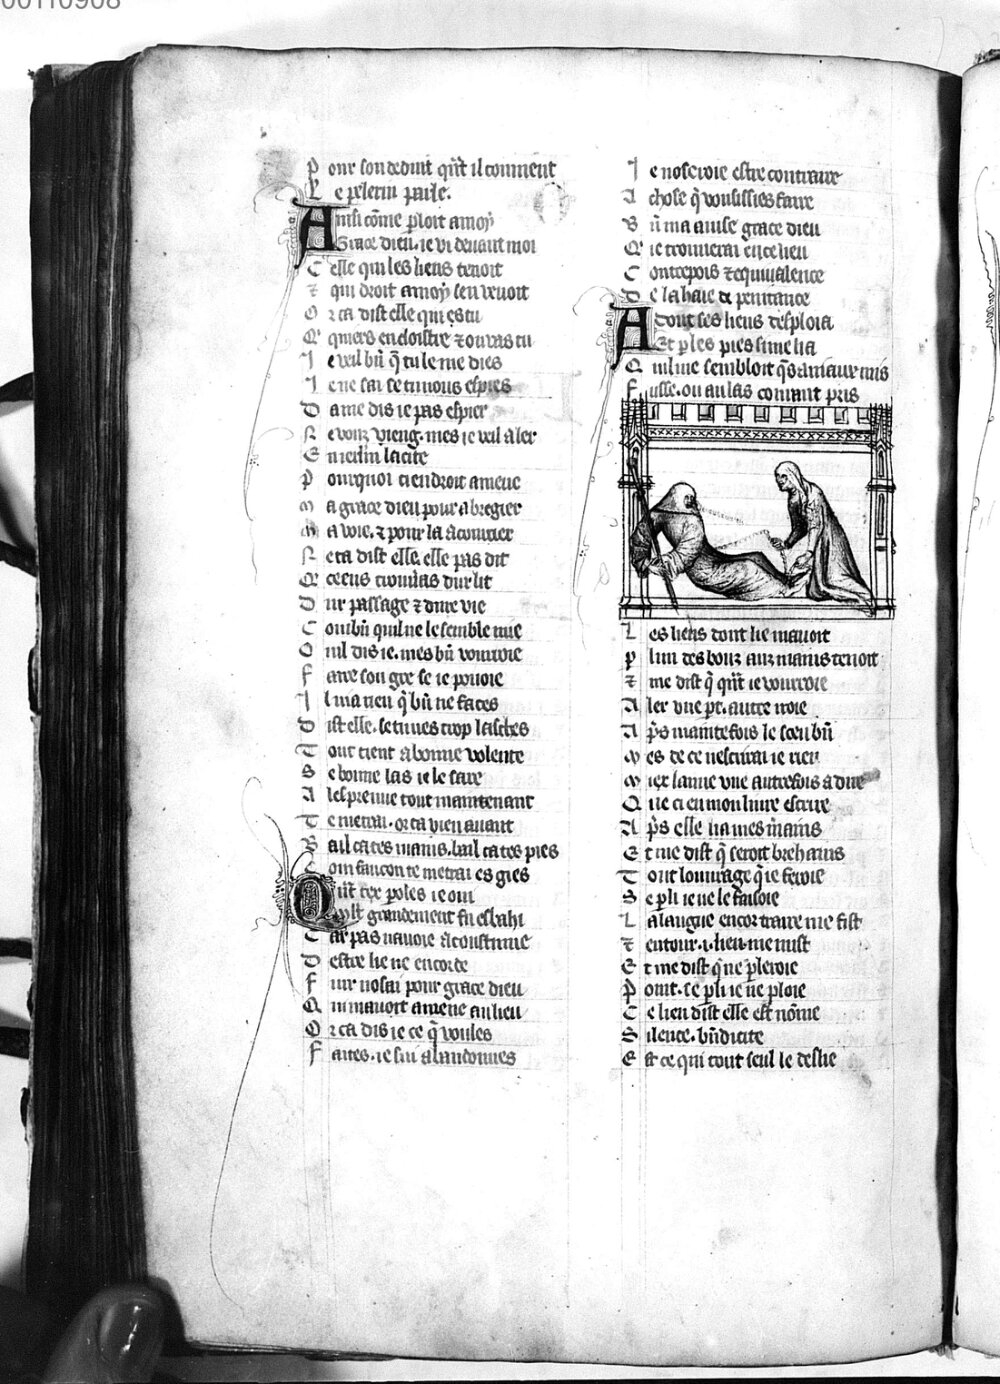 00110908
Pour son deduit q̃nt il conuient
Le pelerin parle.
Ansi cõme ploit a moy
Grace dieu. ie vi deuant moi
Celle qui les liens tenoit
⁊ qui droit a moy sen venoit
Or ca dist elle qui es tu
Qͥ quiers en cloistre ⁊ ou vas tu
Ie val bñ q̃ tu le me dies
Ie ne sai se tu nous espies
Dame dis ie pas espier
Ne vous vieng. mes ie val aler
En ierlm la cite
Pourquoi ci endroit amene
Ma grace dieu pour abregier
Ma voie. ⁊ pour la acourcier
Ne ta dist elle. elle pas dit
Qͤ ceens trouuas dur lit
Dur passage ⁊ dure vie
Combñ quil ne le semble mie
Oul dis ie. mes bñ vourroie
Faire son gre se ie pouoie
Il ma rien q̃ bñ ne faces
Dist elle. se tu nes trop lasches
Tout tient a bonne volente
Se bonne las ie le sare
A lespreuue tout maintenant
Te metrai. or ca vien auant
Bail ca tes mains. bail ca tes pies
Com faucon te metrai es gies
Quãt tex poles ie oui
Mlt grandement fu esbahi
Car pas nauoie acoustume
Destre lie ne encorde
Fuir nosai pour grace dieu
Qui mauoit amene au lieu
Or ca dis ie ce q̃ voules
Faites. ie sui abandonnes
Ie noseroie estre contraire
A chose q̃ voulissies faire
Bñ ma aprise grace dieu
Qͤ ie trouuerai en ce lieu
Contrepois ⁊ equiualence
De la haie de penitance
Adont ses liens desploia
Et p les pies si me lia
Quil me sembloit q̃ s aniaux mis
Fusse. ou au las comant pris
Les liens dont lie mauoit
P lun des bous aux mains tenoit
⁊ me dist q̃ q̃nt ie vourroie
Aler vne pt. autre iroie
Aps̃ maintefois le sceu bñ
Mes de ce nescriuai ie rien
Miex laime vne autrefois a dire
Que ci en mon liure escrire
Aps̃ elle lia mes mains
Et me dist q̃ seroit brehains
Tout louurage q̃ ie feroie
Se p li ie ne le faisoie
La langue encor traire me fist
⁊ entour .i. lien me mist
Et me dist q̃ ne pleroie
Point. se p li ie ne ploie
Ce lien dist elle est nõme
Silence. bñdicite
Est ce qui tout seul le deslie